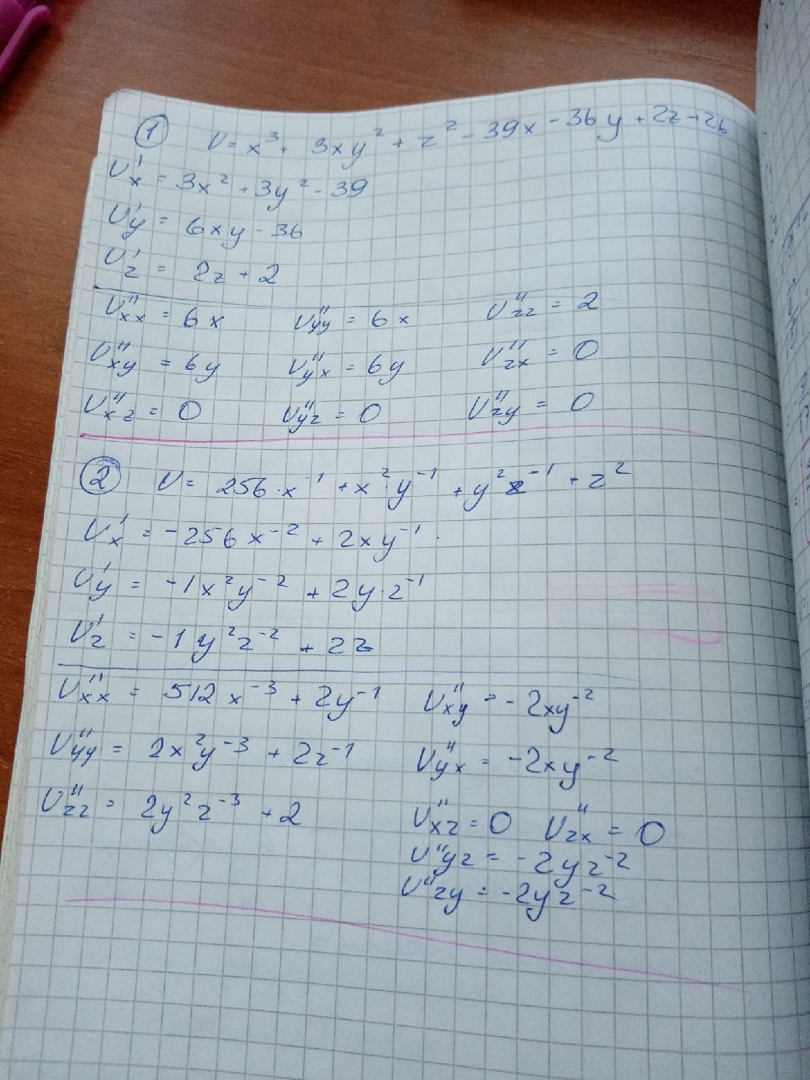 ① U = x³ + 3xy² + z² - 39x - 36y + 2z + 26
U'x = 3x² + 3y² - 39
U'y = 6xy - 36
U'z = 2z + 2
U''xx = 6x U''yy = 6x U''zz = 2
U''xy = 6y U''yx = 6y U''zx = 0
U''xz = 0 U''yz = 0 U''zy = 0
② U = 256·x⁻¹ + x²y⁻¹ + y²z⁻¹ + z²
U'x = -256x⁻² + 2xy⁻¹
U'y = -1x²y⁻² + 2y·z⁻¹
U'z = -1y²z⁻² + 2z
U''xx = 512x⁻³ + 2y⁻¹ U''xy = -2xy⁻²
U''yy = 2x²y⁻³ + 2z⁻¹ U''yx = -2xy⁻²
U''zz = 2y²z⁻³ + 2 U''xz = 0 U''zx = 0
U''yz = -2yz⁻²
U''zy = -2yz⁻²